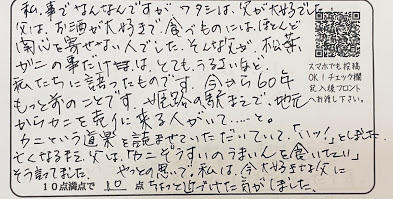 私事でなんなんですが、ワタシは父が大好でした
父は、お酒が大好きで、食べものには、ほとんど
関心を寄せない人でした。そんな父が、松葉
ガニの事だけは、とても、うるさいほど、
私たちに語ったものです。今から60年
もっと前のことです。姫路の駅まで、地元
からカニを売りに来る人がいて……と。
カニという道楽を読ませていただいていて、「いッ!」としました
亡くなるまで、父は、「カニぞうすいのうまいんを食いたい」
そう言ってました。やっとの思いで、私は、今大好きな父に
10点満点で 10 点 ちょっと近づけた気がしました。
スマホでも投稿
OK!チェック欄
記入後フロント
へお渡し下さい。